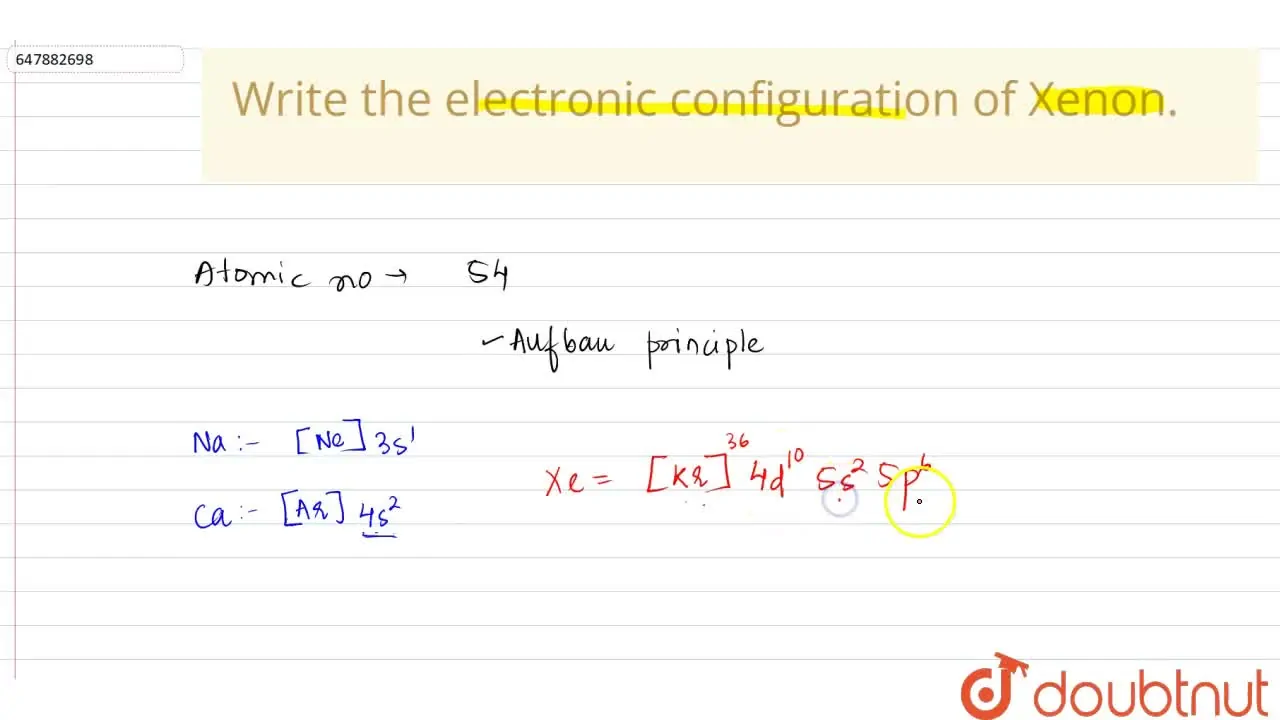 647882698
Write the electronic configuration of Xenon.
Atomic no → 54
✓ Aufbau principle
Na :- [Ne] 3s¹
Xe = [Kr]³⁶ 4d¹⁰ 5s² 5p⁶
Ca :- [Ar] 4s²
doubtnut